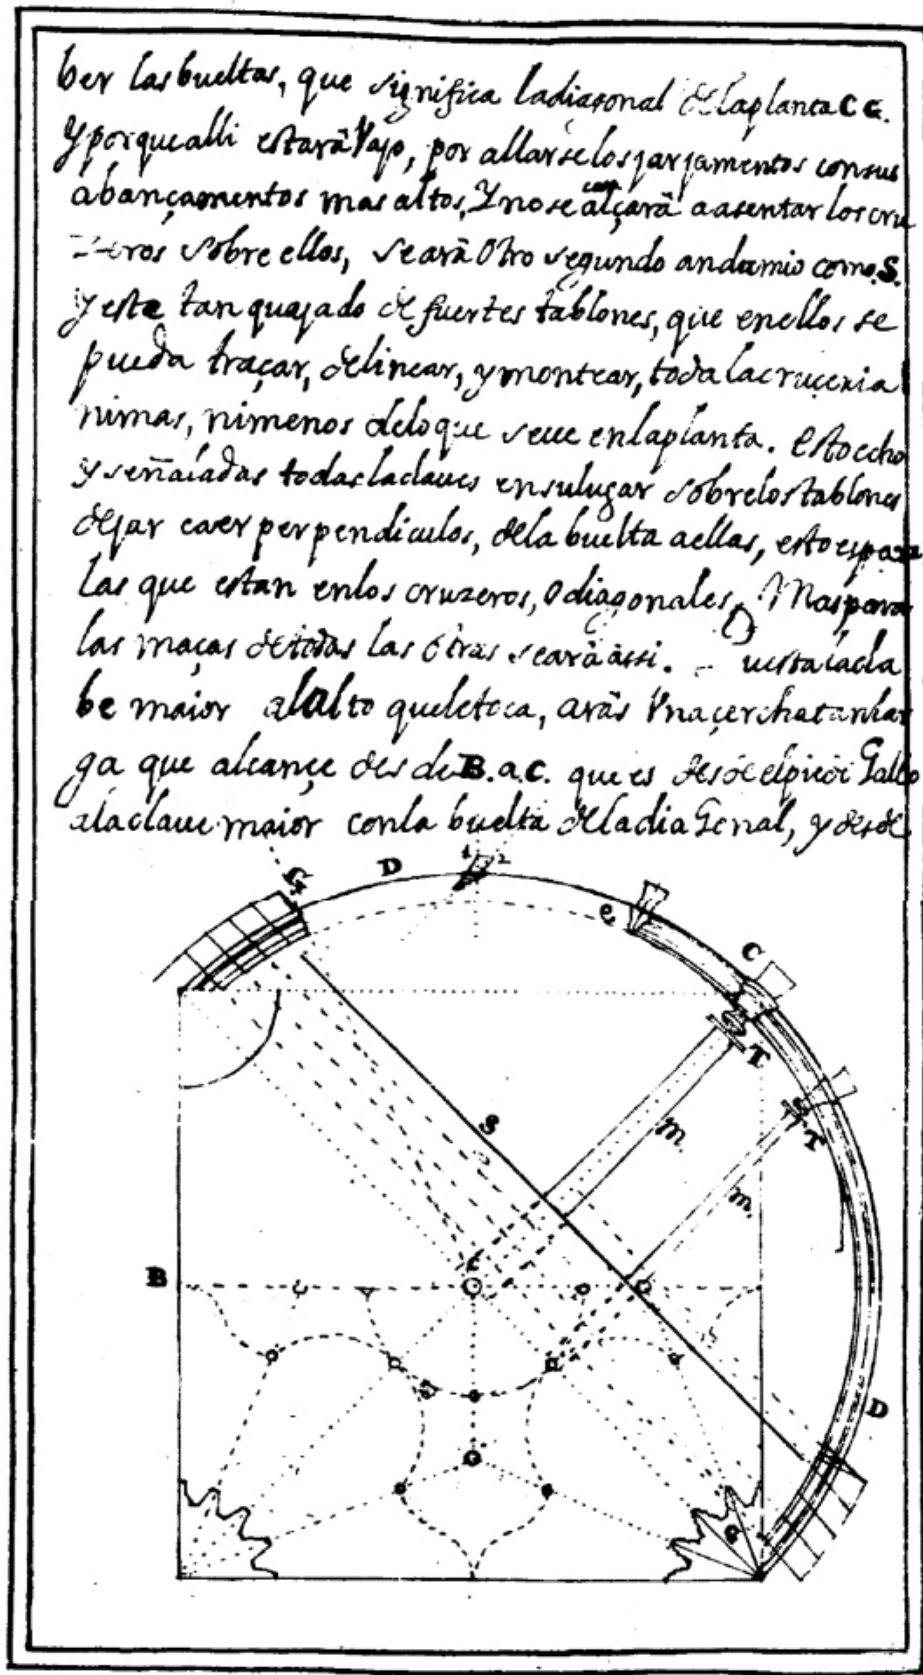 ber las bueltas, que significa ladiagonal de laplanta C C.
Y porque alli estarà Vajo, por allarse los jarjamentos consus
abançamentos mas altos, Y no se alçarà a asentar los cru
zeros sobre ellos, se arà Otro segundo andamio como.S.
y este tan quajado de fuertes tablones, que enellos se
pueda traçar, delinear, y montear, toda lacruceria
nimas, nimenos deloque seve enlaplanta. estoecho
y señaladas todaslaclaves ensulugar sobrelostablones
dejar caer perpendiculos, dela buelta aellas, estoespara
las que estan enlos cruzeros, o diagonales, Maspara
las maças detodas las otras se arà assi. Puesta lacla
be maior alalto queletoca, aràs Vnaçerchatanlar
ga que alcançe desde B. a C. que es desde elpiede Gallo
alaclave maior conla buelta de ladiaGonal, y desde
D
1 2
e
C
T
T
S
m.
m.
B
c
D